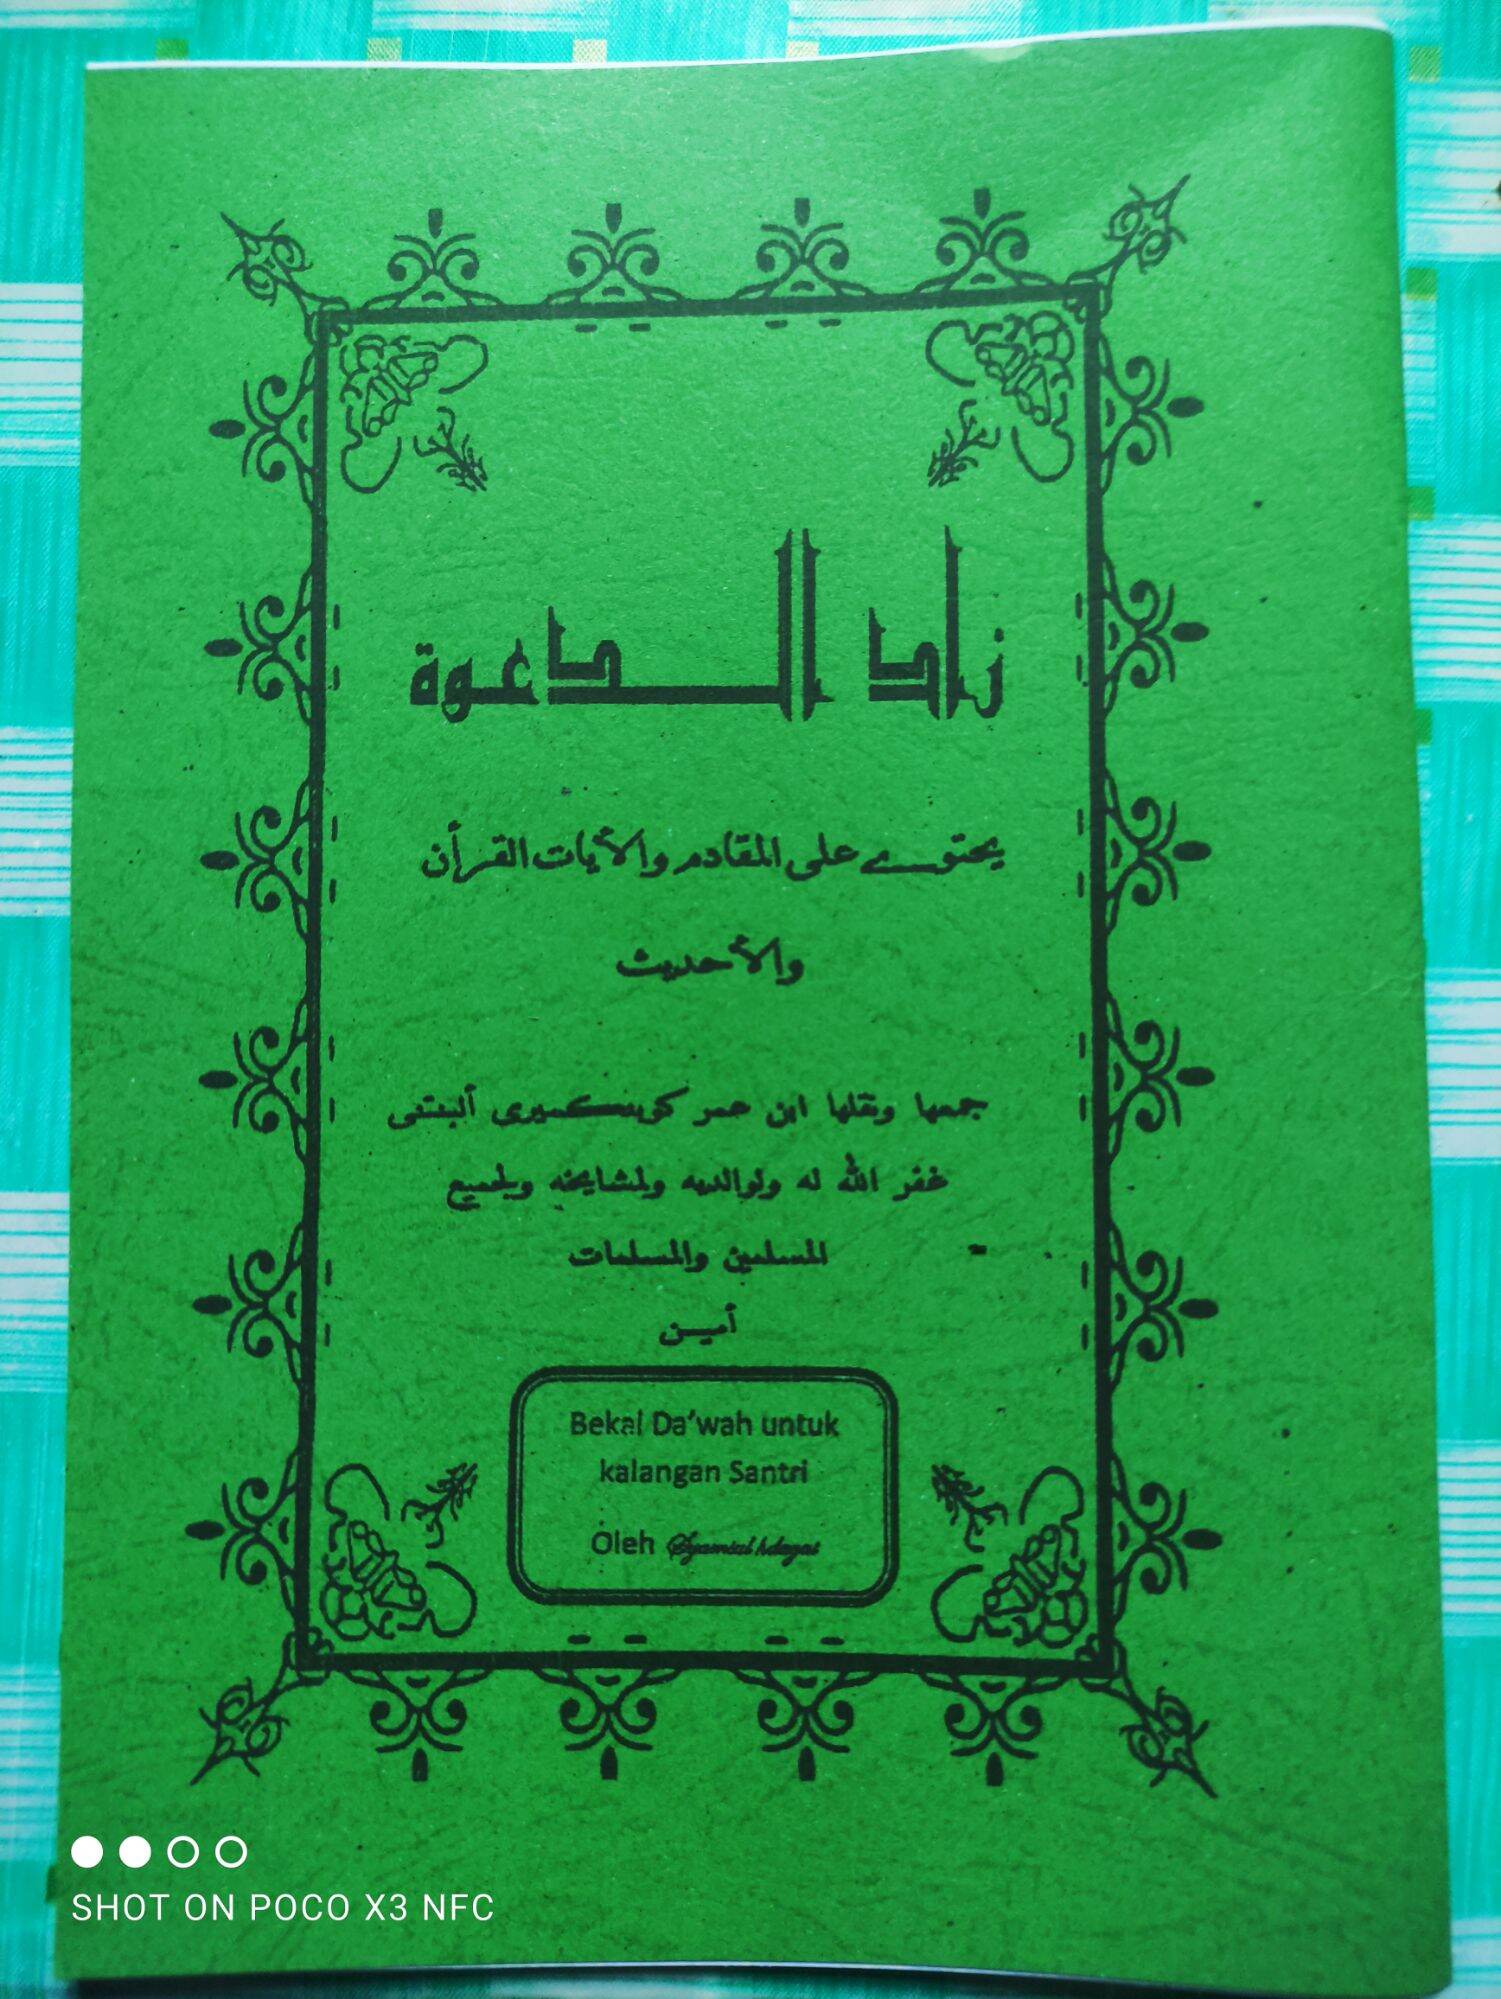 زاد الداعوة
يحتوي على المقادم والأيات القرأن
والأحديث
جمعها ونقلها ابن عمر ألبنتنى
غفر الله له ولوالديه ولمشايخه ولجميع
المسلمين والمسلمات
أمين
Bekal Da'wah untuk
kalangan Santri
Oleh
SHOT ON POCO X3 NFC